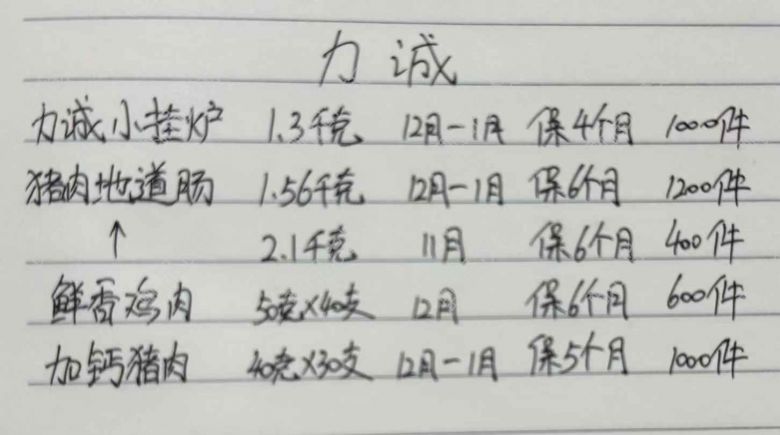 力诚
力诚小挂炉 1.3千克 12月-1月 保4个月 1000件
猪肉地道肠 1.56千克 12月-1月 保6个月 1200件
↑ 2.1千克 11月 保6个月 400件
鲜香鸡肉 50克×40支 12月 保6个月 600件
加钙猪肉 40克×30支 12月-1月 保5个月 1000件